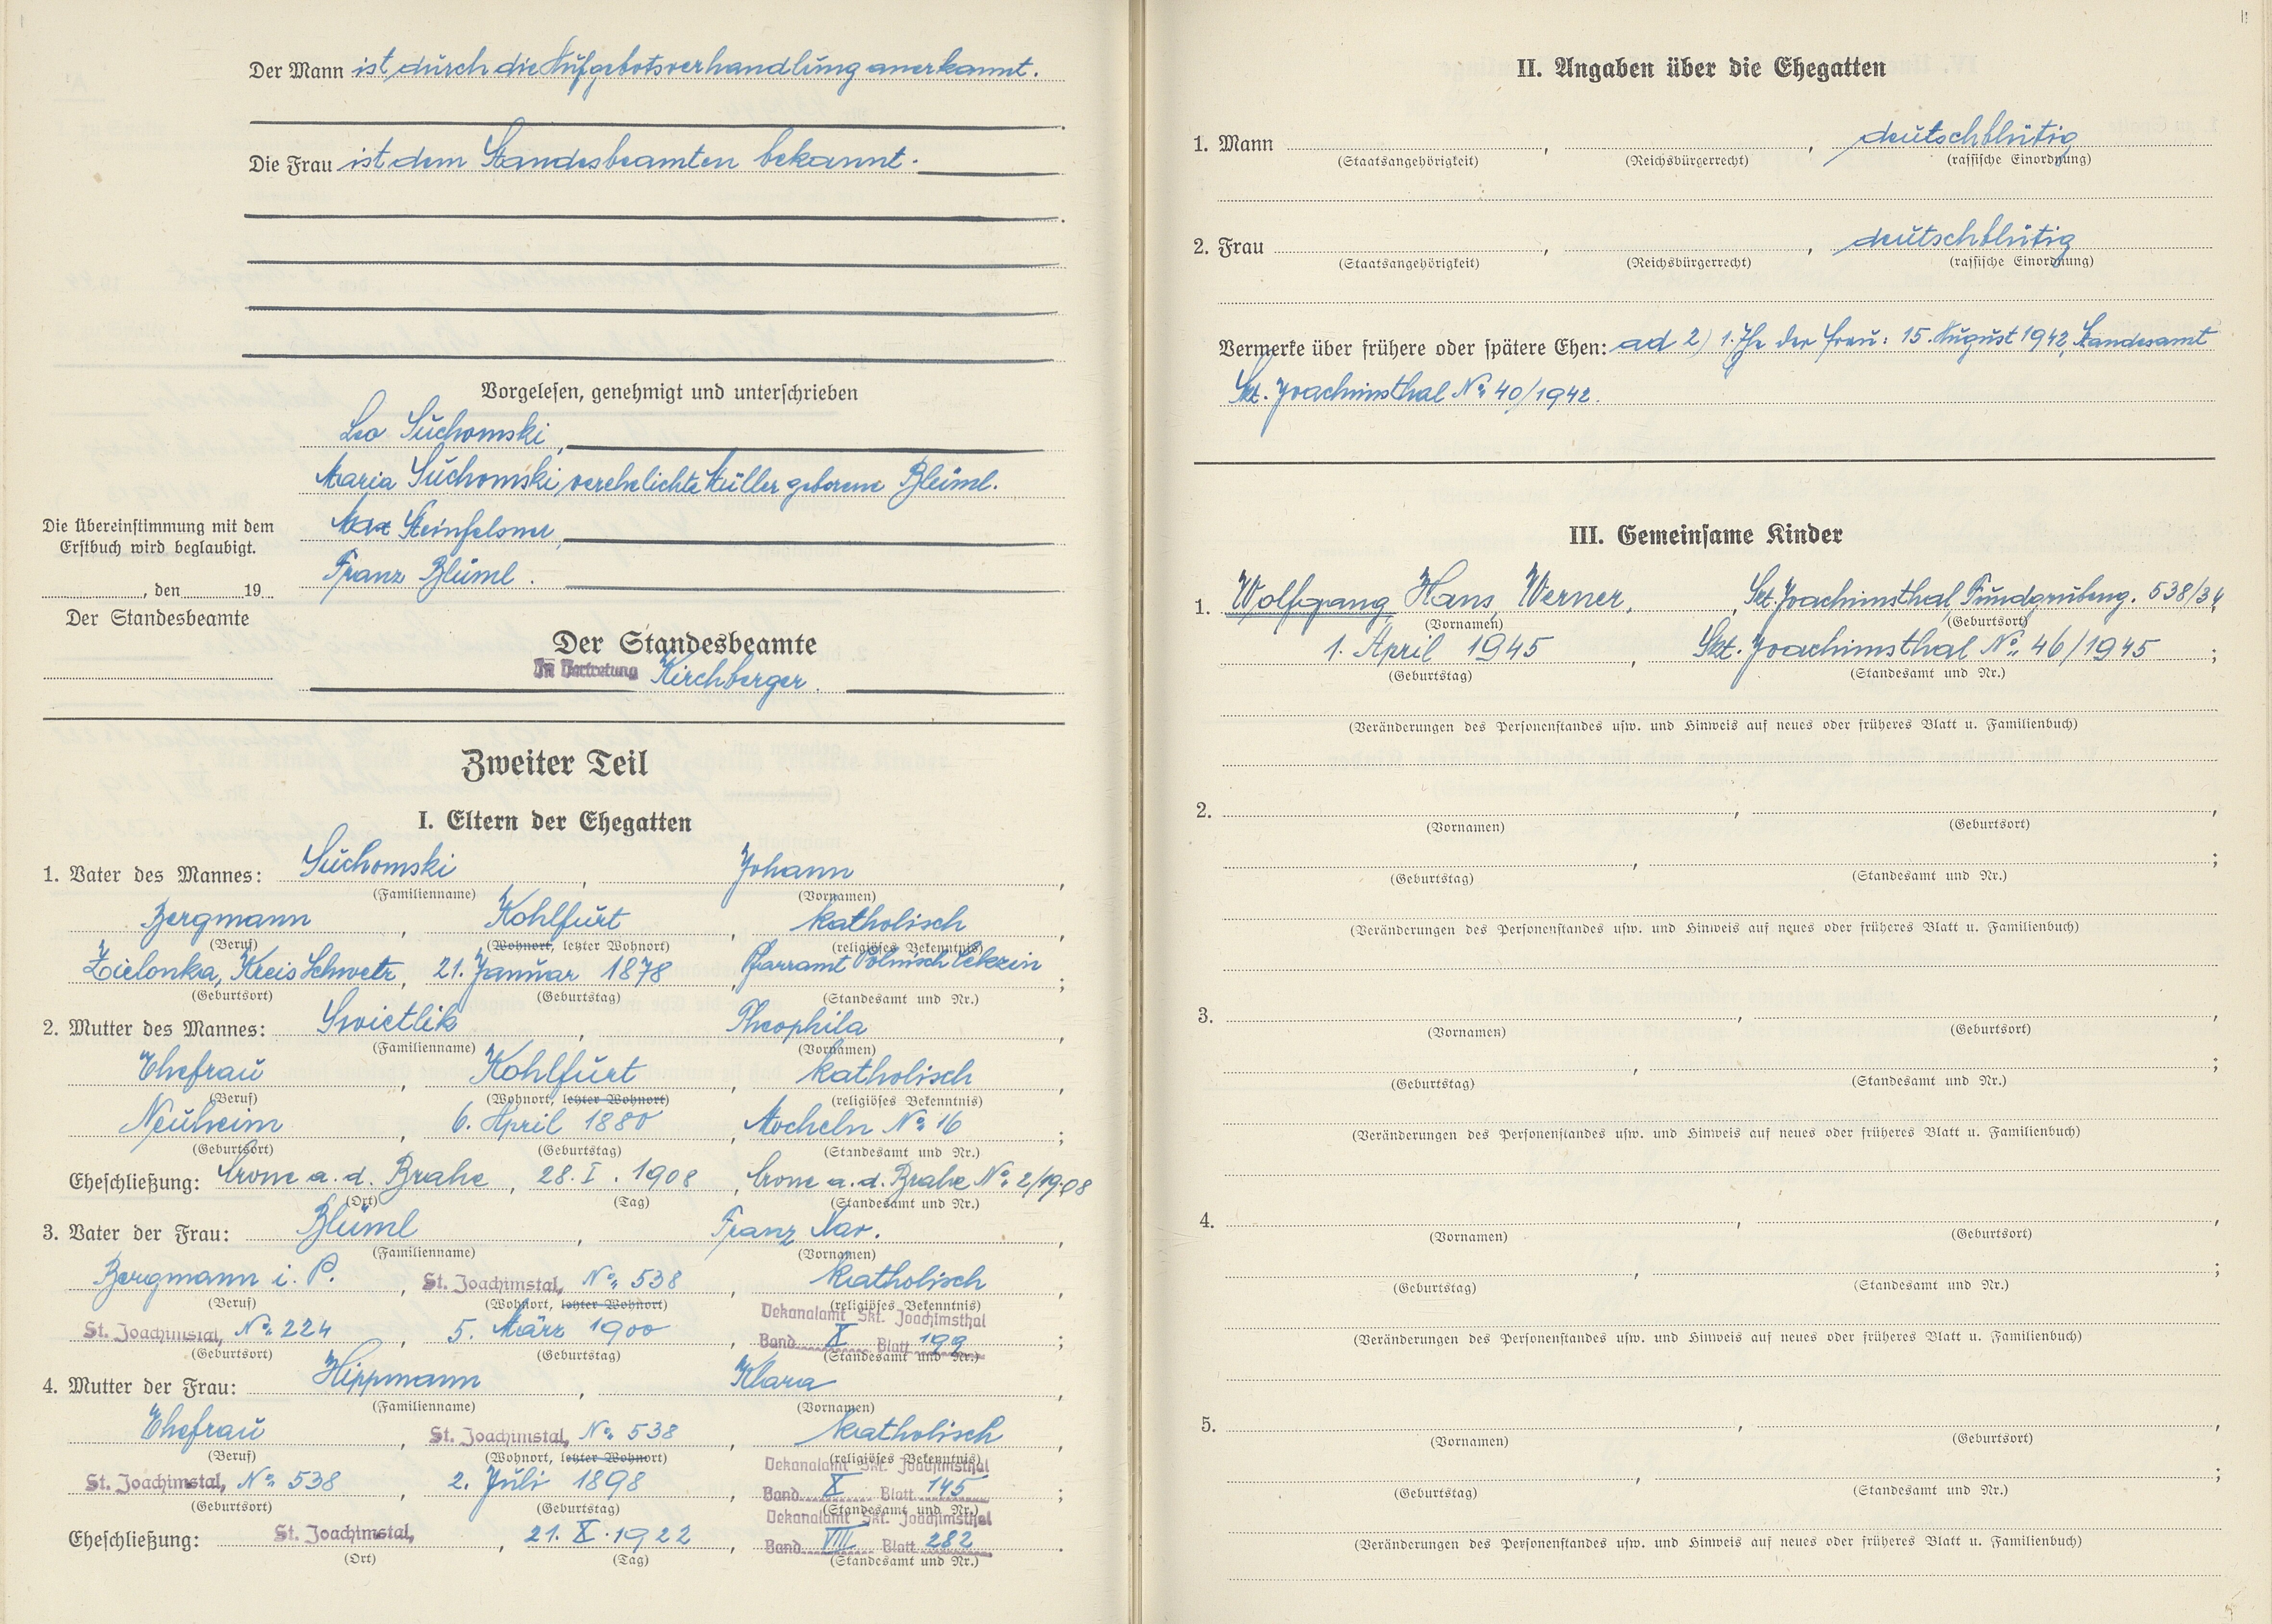 Der Mann ist durch die Aufgebotsverhandlung anerkannt.
Die Frau ist dem Standesbeamten bekannt.
Vorgelesen, genehmigt und unterschrieben
Leo Suchomski,
Maria Suchomski verehelichte Müller geborene Bleiml.
Max Steinfelsner,
Franz Bleiml.
Die Übereinstimmung mit dem
Erstbuch wird beglaubigt.
, den 19
Der Standesbeamte
Der Standesbeamte
In Vertretung Kirchberger.
Zweiter Teil
I. Eltern der Ehegatten
1. Vater des Mannes: Suchomski, Johann,
(Familienname) (Vornamen)
Bergmann, Kohlfurt, katholisch,
(Beruf) (Wohnort, letzter Wohnort) (religiöses Bekenntnis)
Zielonka, Kreis Schwetz, 21. Januar 1878, Pfarramt Polnisch Cekzin;
(Geburtsort) (Geburtstag) (Standesamt und Nr.)
2. Mutter des Mannes: Swietlik, Theophila,
(Familienname) (Vornamen)
Ehefrau, Kohlfurt, katholisch,
(Beruf) (Wohnort, letzter Wohnort) (religiöses Bekenntnis)
Neuheim, 6. April 1880, Mocheln No. 16;
(Geburtsort) (Geburtstag) (Standesamt und Nr.)
Eheschließung: Crone a. d. Brahe, 28. I. 1908, Crone a. d. Brahe No. 2/1908
(Ort) (Tag) (Standesamt und Nr.)
3. Vater der Frau: Bleiml, Franz Xav.,
(Familienname) (Vornamen)
Bergmann i. P., St. Joachimstal, No. 538, katholisch,
(Beruf) (Wohnort, letzter Wohnort) (religiöses Bekenntnis)
Dekanalamt Skt. Joachimsthal
St. Joachimstal, No. 224, 5. März 1900, Band X Blatt 199;
(Geburtsort) (Geburtstag) (Standesamt und Nr.)
4. Mutter der Frau: Hippmann, Klara,
(Familienname) (Vornamen)
Ehefrau, St. Joachimstal, No. 538, katholisch,
(Beruf) (Wohnort, letzter Wohnort) (religiöses Bekenntnis)
Dekanalamt Skt. Joachimsthal
St. Joachimstal, No. 538, 2. Juli 1898, Band X Blatt 145;
(Geburtsort) (Geburtstag) (Standesamt und Nr.)
Dekanalamt Skt. Joachimsthal
Eheschließung: St. Joachimstal, 21. X. 1922, Band VIII Blatt 282.
(Ort) (Tag) (Standesamt und Nr.)
II. Angaben über die Ehegatten
1. Mann , , deutschblütig
(Staatsangehörigkeit) (Reichsbürgerrecht) (rassische Einordnung)
2. Frau , , deutschblütig
(Staatsangehörigkeit) (Reichsbürgerrecht) (rassische Einordnung)
Vermerke über frühere oder spätere Ehen: ad 2) 1. Ehe der Frau: 15. August 1942, Standesamt
Skt. Joachimsthal No. 40/1942.
III. Gemeinsame Kinder
1. Wolfgang Hans Werner, Skt. Joachimsthal, Fundgrubeng. 538/34,
(Vornamen) (Geburtsort)
1. April 1945, Skt. Joachimsthal No. 46/1945;
(Geburtstag) (Standesamt und Nr.)
(Veränderungen des Personenstandes usw. und Hinweis auf neues oder früheres Blatt u. Familienbuch)
2. , ,
(Vornamen) (Geburtsort)
, ;
(Geburtstag) (Standesamt und Nr.)
(Veränderungen des Personenstandes usw. und Hinweis auf neues oder früheres Blatt u. Familienbuch)
3. , ,
(Vornamen) (Geburtsort)
, ;
(Geburtstag) (Standesamt und Nr.)
(Veränderungen des Personenstandes usw. und Hinweis auf neues oder früheres Blatt u. Familienbuch)
4. , ,
(Vornamen) (Geburtsort)
, ;
(Geburtstag) (Standesamt und Nr.)
(Veränderungen des Personenstandes usw. und Hinweis auf neues oder früheres Blatt u. Familienbuch)
5. , ,
(Vornamen) (Geburtsort)
, ;
(Geburtstag) (Standesamt und Nr.)
(Veränderungen des Personenstandes usw. und Hinweis auf neues oder früheres Blatt u. Familienbuch)